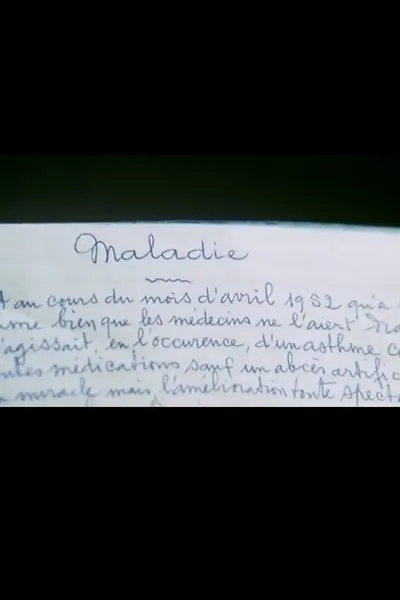 Maladie
t au cours du mois d'avril 1952 qu'a
me bien que les médecins ne l'aient
'agissait, en l'occurence, d'un asthme
médications sauf un abcès artific
miracle mais l'amélioration toute spect